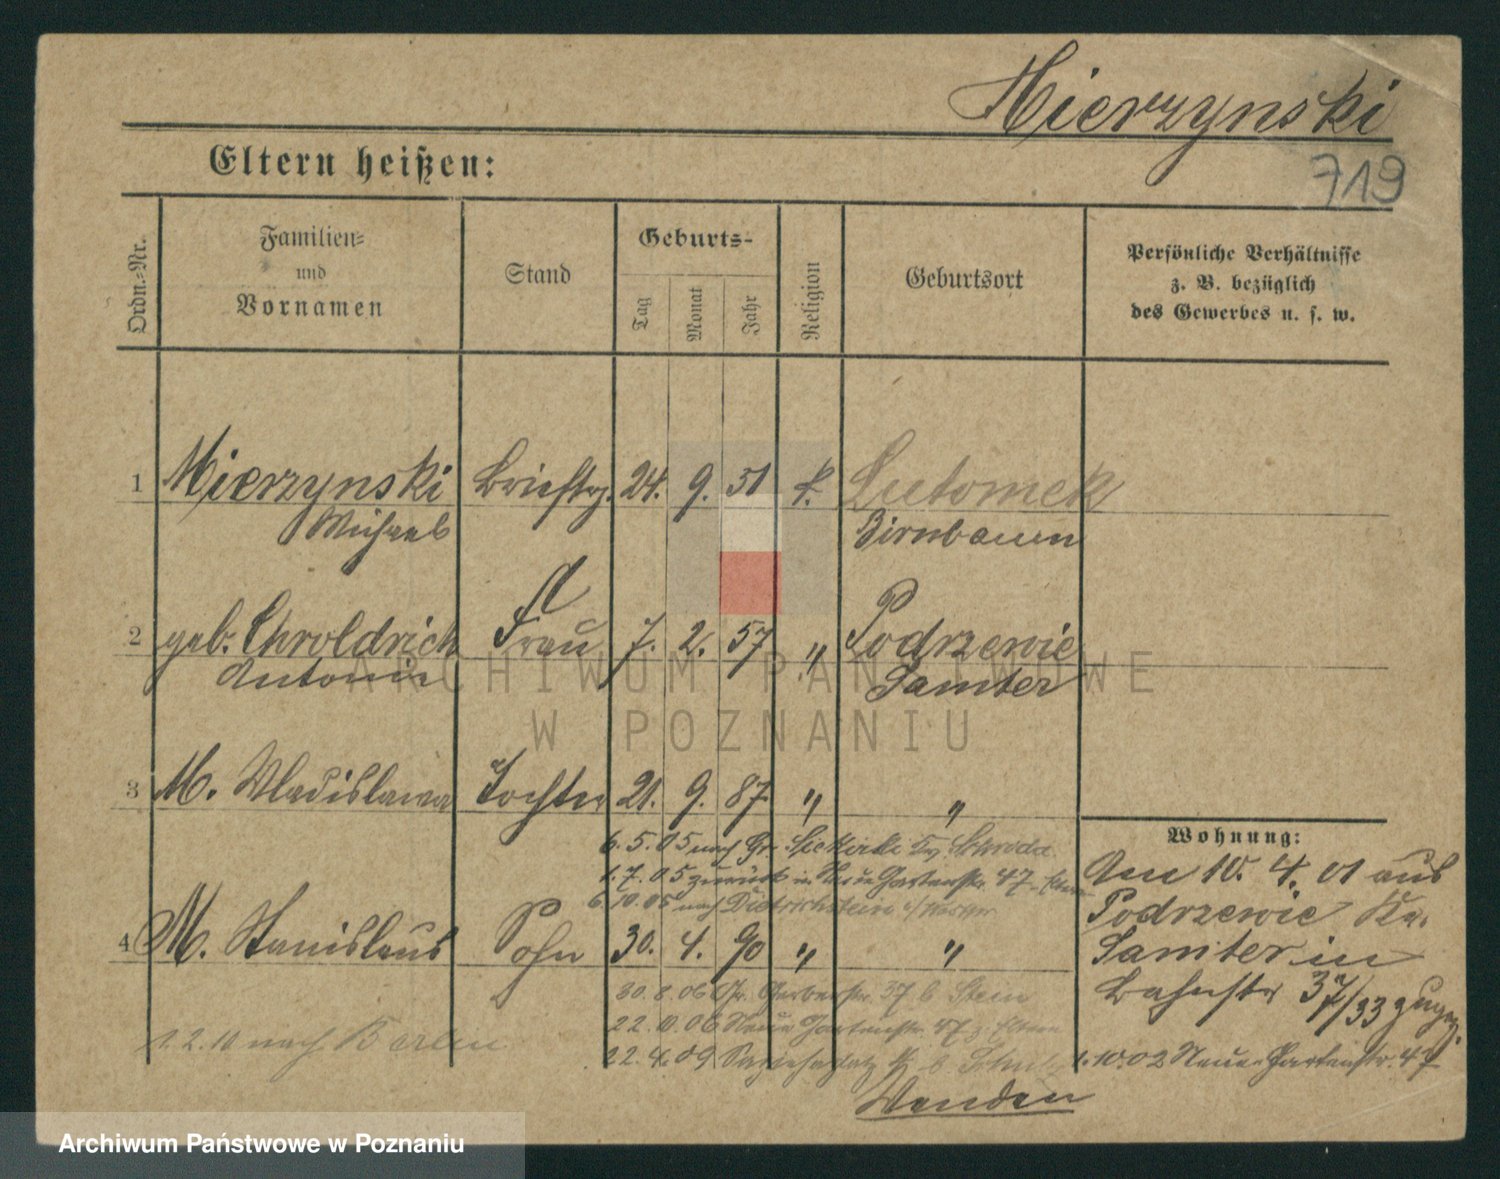 Mierzynski
719
Eltern heißen:
Ordn.-Nr.
Familien-
und
Vornamen
Stand
Geburts-
Tag
Monat
Jahr
Religion
Geburtsort
Persönliche Verhältnisse
z. B. bezüglich
des Gewerbes u. s. w.
1 Mierzynski Brieftrg. 24. 9. 51 k. Lutomek
Michael Birnbaum
2 geb. Chroldrich Frau 7. 2. 57 " Podrzewie
Antonie Samter
3 M. Wladislawa Tochter 21. 9. 87 " "
6. 5. 05 nach Gr. Siekierki Kr. Schroda
1. 7. 05 zurück in Neue Gartenstr. 47 z. Eltern
6. 10. 05 nach Dietrichstein
4 M. Stanislaus Sohn 30. 4. 90 " "
30. 8. 06 Gr. Gerberstr. 37 b Stein
22. 10. 06 Neue Gartenstr. 47 z. Eltern
1. 2. 10 nach Berlin
22. 4. 09 Sapiehaplatz b
Wohnung:
Am 10. 4. 01 aus
Podrzewie Kr.
Samter in
Bahnstr 32/33 zugez.
1. 10. 02 Neue Gartenstr. 47
Wenden
ARCHIWUM PAŃSTWOWE
W POZNANIU
Archiwum Państwowe w Poznaniu